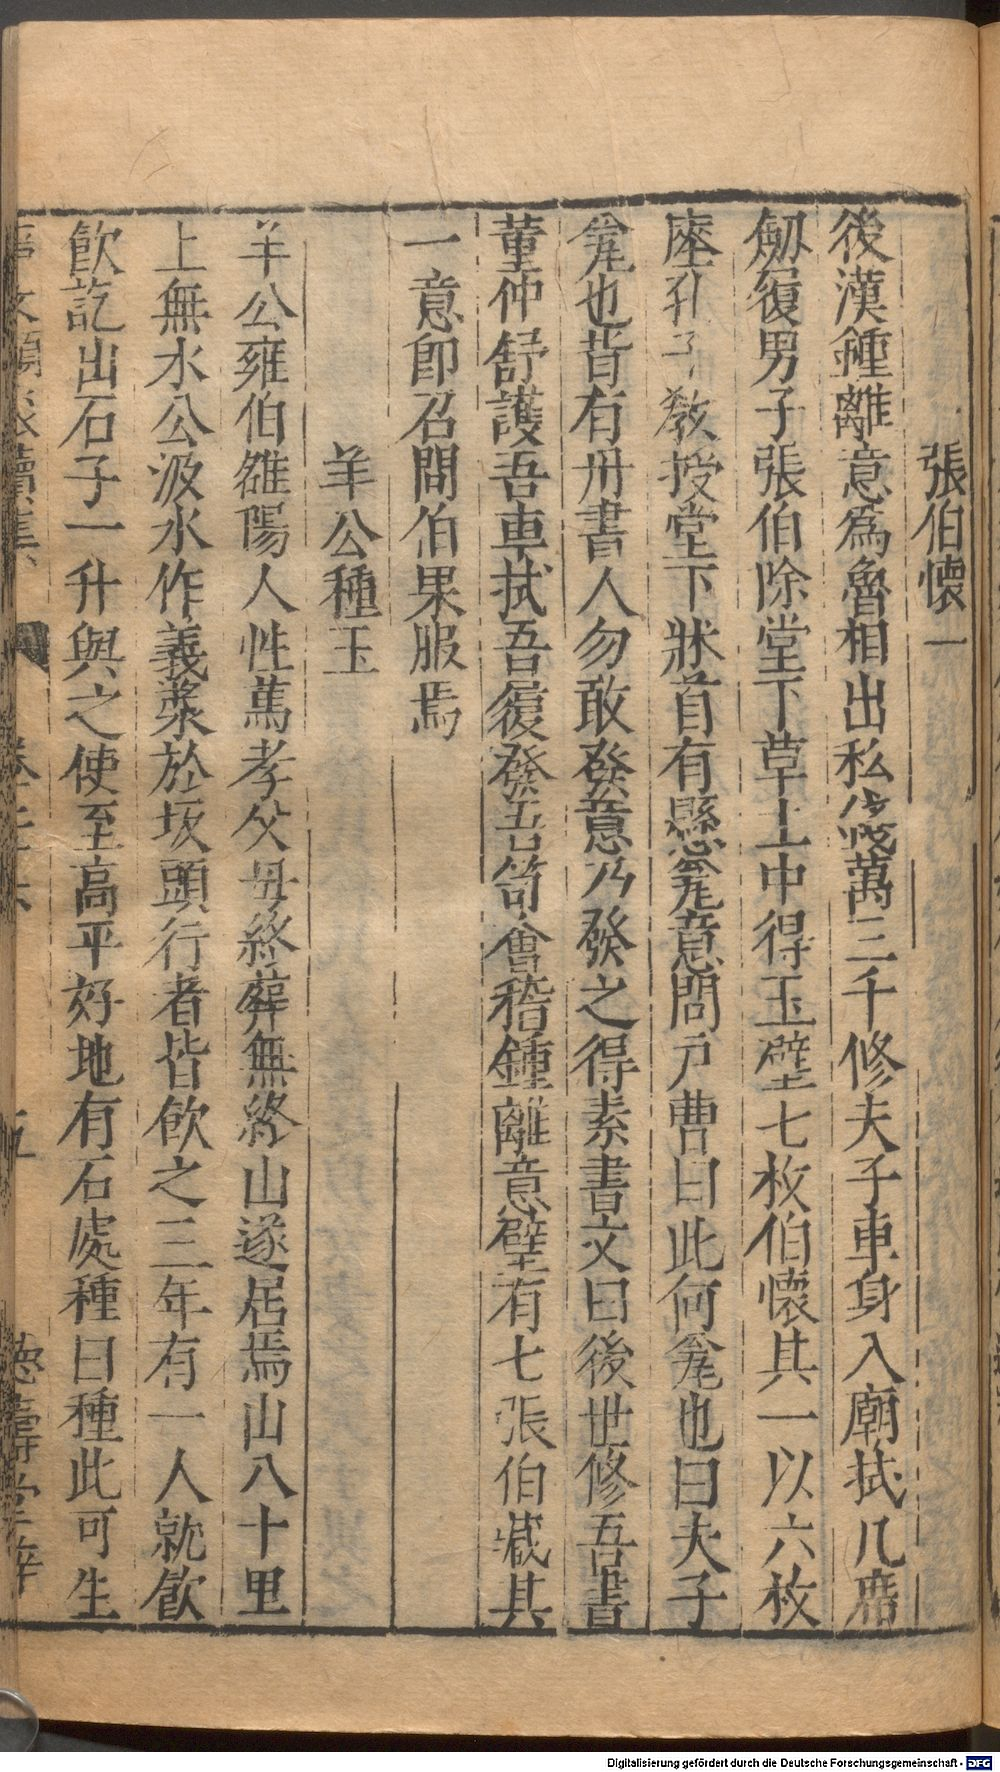 張伯懷一
後漢鍾離意爲魯相出私錢萬三千修夫子車身入廟拭几席
劒履男子張伯除堂下草土中得玉璧七枚伯懷其一以六枚
座孔子教授堂下牀首有懸瓮意問户曹曰此何瓮也曰夫子
瓮也背有丹書人勿敢發意乃發之得素書文曰後世修吾書
董仲舒護吾車拭吾履發吾笥會稽鍾離意璧有七張伯藏其
一意卽召問伯果服焉
羊公種玉
羊公雍伯雒陽人性篤孝父母終葬無終山遂居焉山八十里
上無水公汲水作義漿於坂頭行者皆飲之三年有一人就飲
飲訖出石子一升與之使至高平好地有石處種曰種此可生
卷 五 德壽堂梓
Digitalisierung gefördert durch die Deutsche Forschungsgemeinschaft - DFG